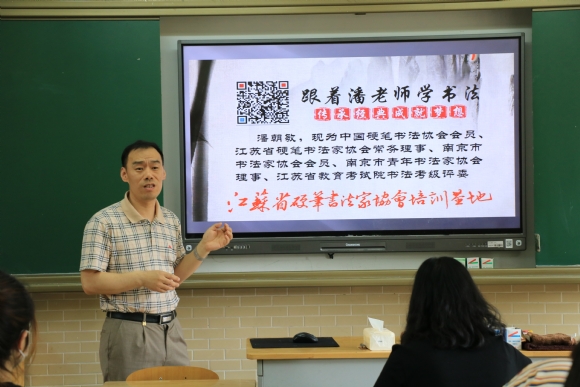 跟着潘老师学书法
传承经典成就梦想
潘朝敏,现为中国硬笔书法协会会员、
江苏省硬笔书法家协会常务理事、南京市
书法家协会会员、南京市青年书法家协会
理事、江苏省教育考试院书法考级评委
江蘇省硬筆书法家協會培訓基地